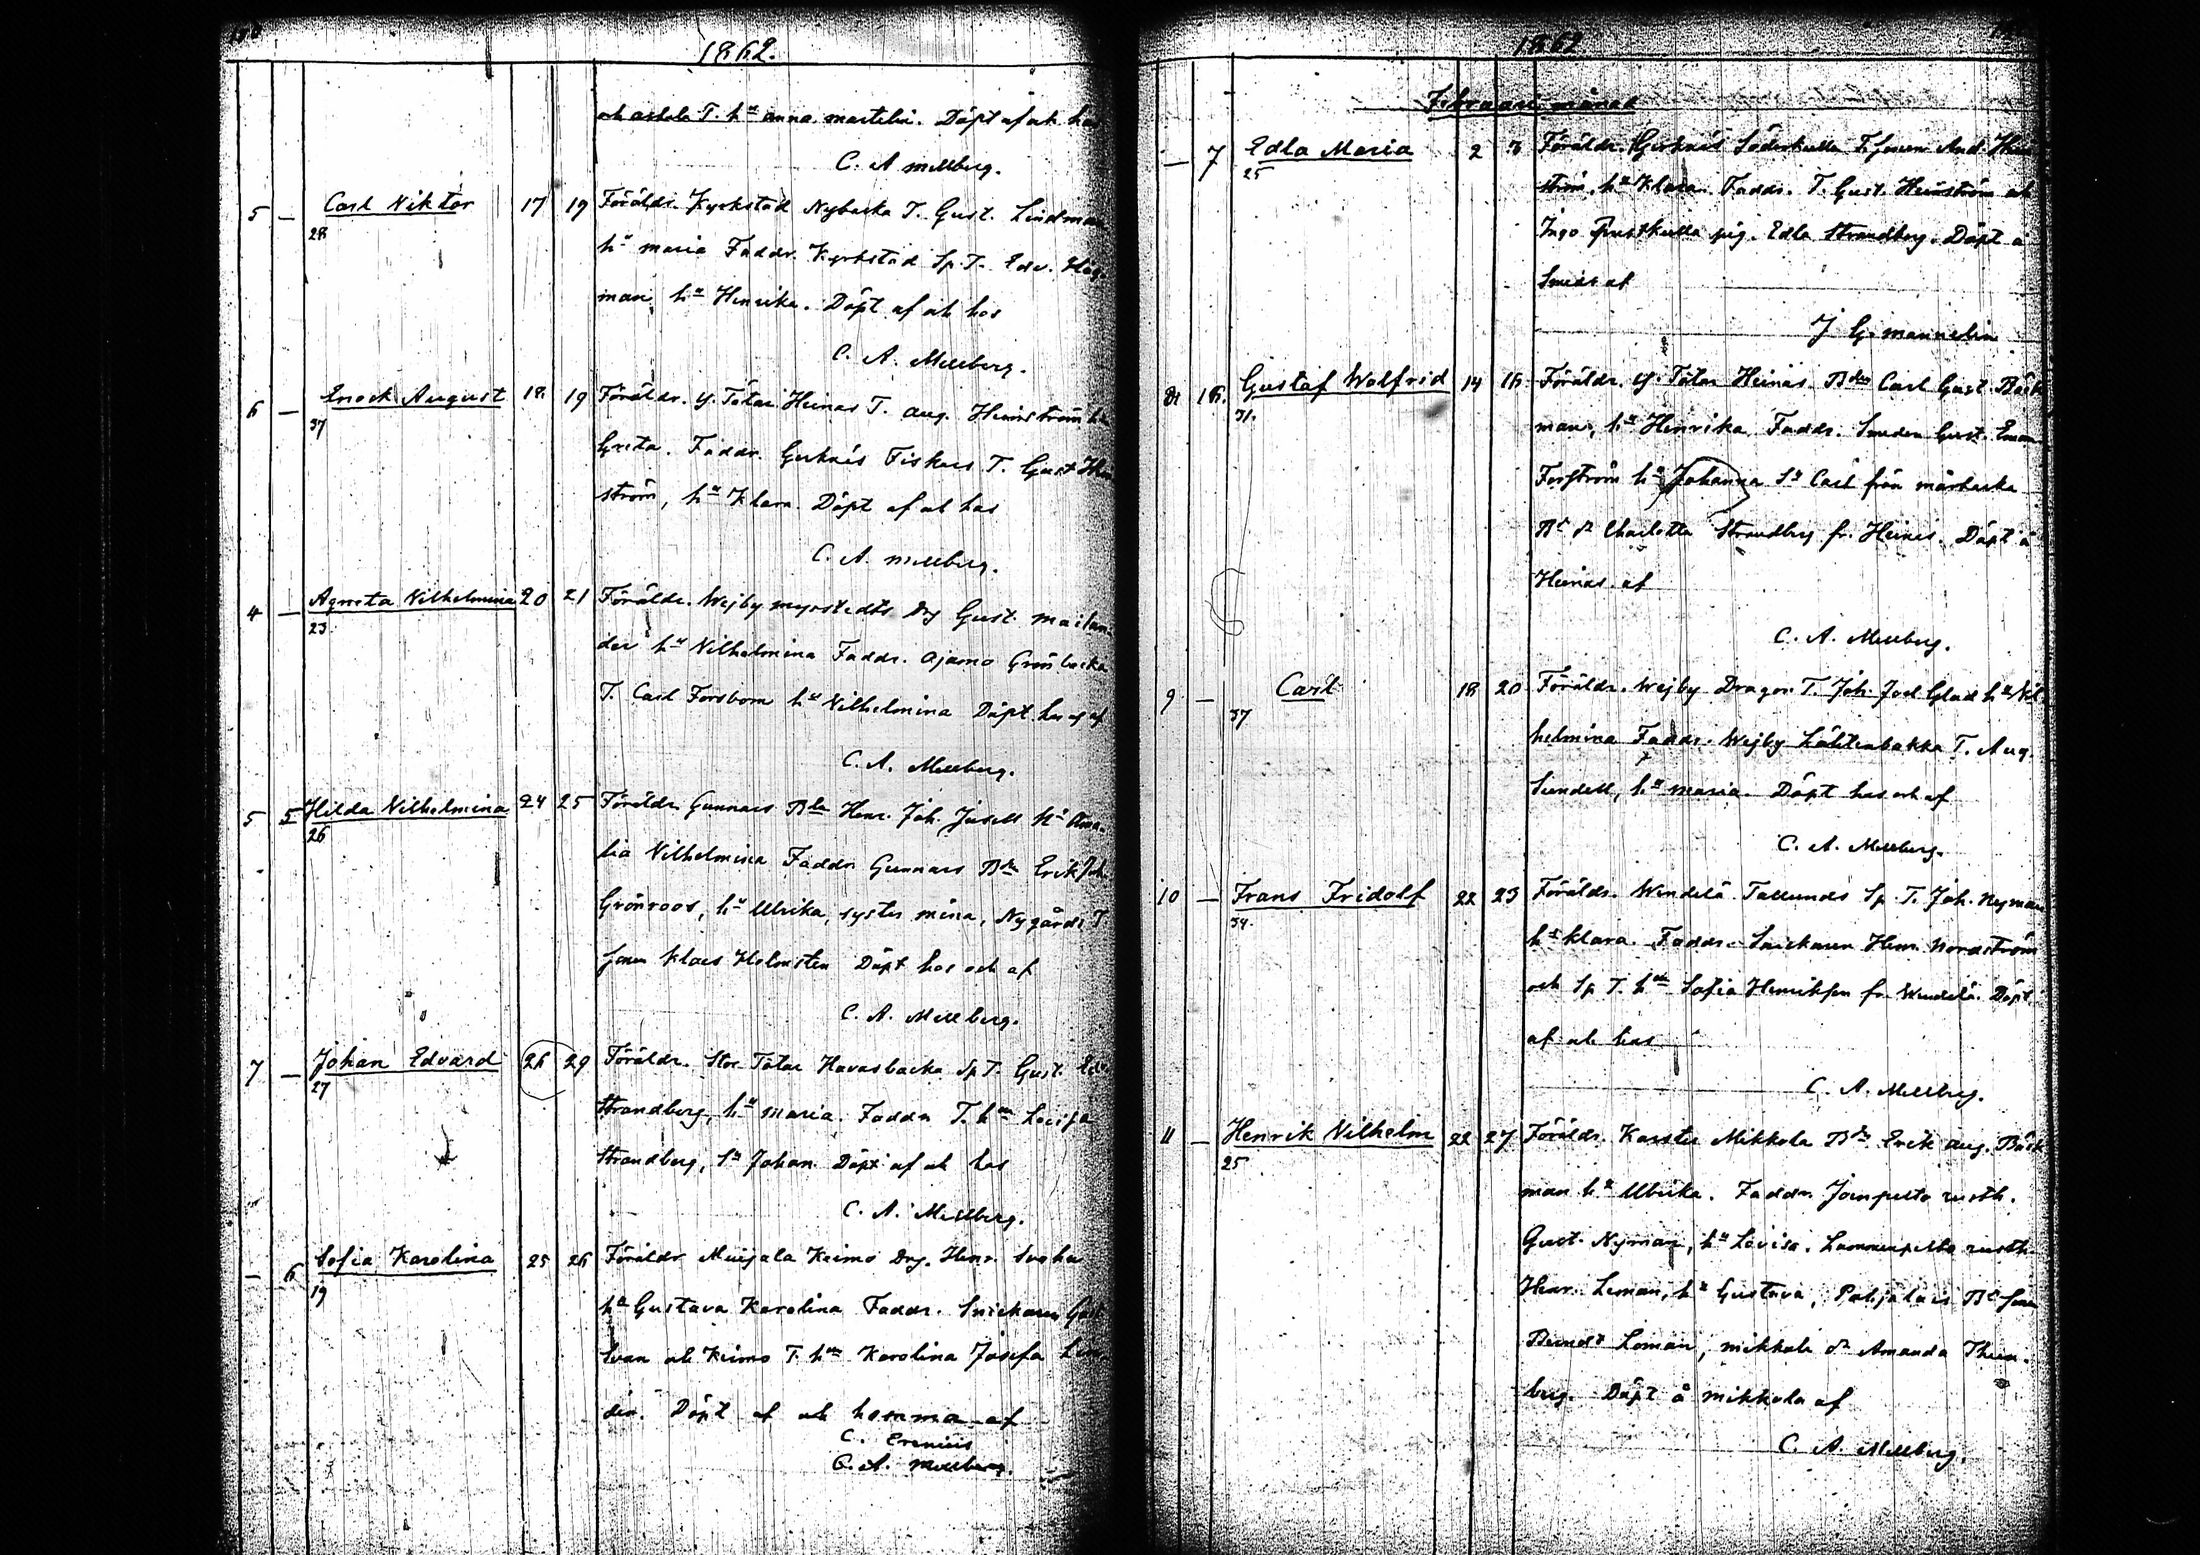 1862.
och T. hu anna martelin. Döpt af och hos
C. A mellberg.
5 — Carl Viktor 17 19 Föräldr. Kyrkstad Nybacka T. Gust. Lindman
28
hu maria Faddr. Kyrkstad Sp. T. Edv. Häg-
man, hu Henrika. Döpt af och hos
C. A. Mellberg.
6 — Enock August 18 19 Föräldr. y. Tötar Heinas T. aug. Heinström hu
37
Greta. Faddr. Gerknäs Fiskars T. Gust Hein
ström, hu Klara. Döpt af och hos
C. A. mellberg.
4 — Agneta Vilhelmina 20 21 Föräldr. Wejby myrstedts Drg Gust. mailan-
23
der hu Vilhelmina Faddr. Ojamo Grönbacka
T. Carl Forsbom hu Vilhelmina Döpt hos och af
C. A. Mellberg.
5 5 Hilda Vilhelmina 24 25 Föräldr. Gunnars Bdn Henr. Joh. Jusell hu Ama-
26
lia Vilhelmina Faddr Gunnars Bdn Erik Joh
Grönroos, hu Ulrika, syster mina, Nygårds T.
sonen Klaes Holmsten Döpt hos och af
C. A. Mellberg.
7 — Johan Edvard 26 29 Föräldr. Stor Tötar Havasbacka Sp T. Gust. Edv.
27
Strandberg, hu maria. Faddr T. hun Lovisa
Strandberg, Sn Johan Döpt af och hos
C. A. Mellberg.
— 6 Sofia Karolina 25 26 Föräldr Muijala Keimo Drg. Henr. Svahn
19
hu Gustava Karolina Faddr. Snickaren Gust
Svan och Keimo T. hun Karolina Josefa Lin
der. Döpt af och hemma af
C. Erenius
C. A. mellberg.
1862
Februari månad
— 7 Edla Maria 2 3 Föräldr. Gerknäs Söderkulla T. sonen And. Hein
25
ström, hu Klara. Faddr. T. Gust. Heinström och
Ingo pig. Edla Strandberg. Döpt å
af
J G. mannelin
8 18. Gustaf Walfrid 14 16 Föräldr. y. Tötar Heinas. Bdn Carl Gust. Bäck
31.
man, hu Henrika Faddr. Smeden Gust. Eman
Forsström hu Johanna Sn Carl från mårbacka
Bd dr Charlotta Strandberg fr. Heinäs. Döpt å
Heinas af
C. A. Mellberg.
9 — Carl 18 20 Föräldr. Wejby Dragon T. Joh. Joel Glad hu Vil-
37
helmina Faddr. Wejby Lähtenbakka T. Aug.
Sundell, hu maria. Döpt hos och af
C. A. Mellberg.
10 — Frans Fridolf 22 23 Föräldr. Wendelä Tallunds Sp. T. Joh. Nyman
34.
hu klara. Faddr. Snickaren Henr. Nordström
och Sp T. hun Sofia Henriksson fr. Wendelä. Döpt
af och hos
C. A. Mellberg.
11 — Henrik Vilhelm 22 27 Föräldr. Karstu Mikkola Bdn Erik Aug. Bäck
25
man hu Ulrika. Faddr. Joenpelto rusth.
Gust. Nyman, hu Lovisa. Lammenpelto rusth
Henr. Loman, hu Gustava, Pohjolais Bd son
Berndt Loman, mikkola dr Amanda Thun-
berg. Döpt å mikkola af
C. A. Mellberg.